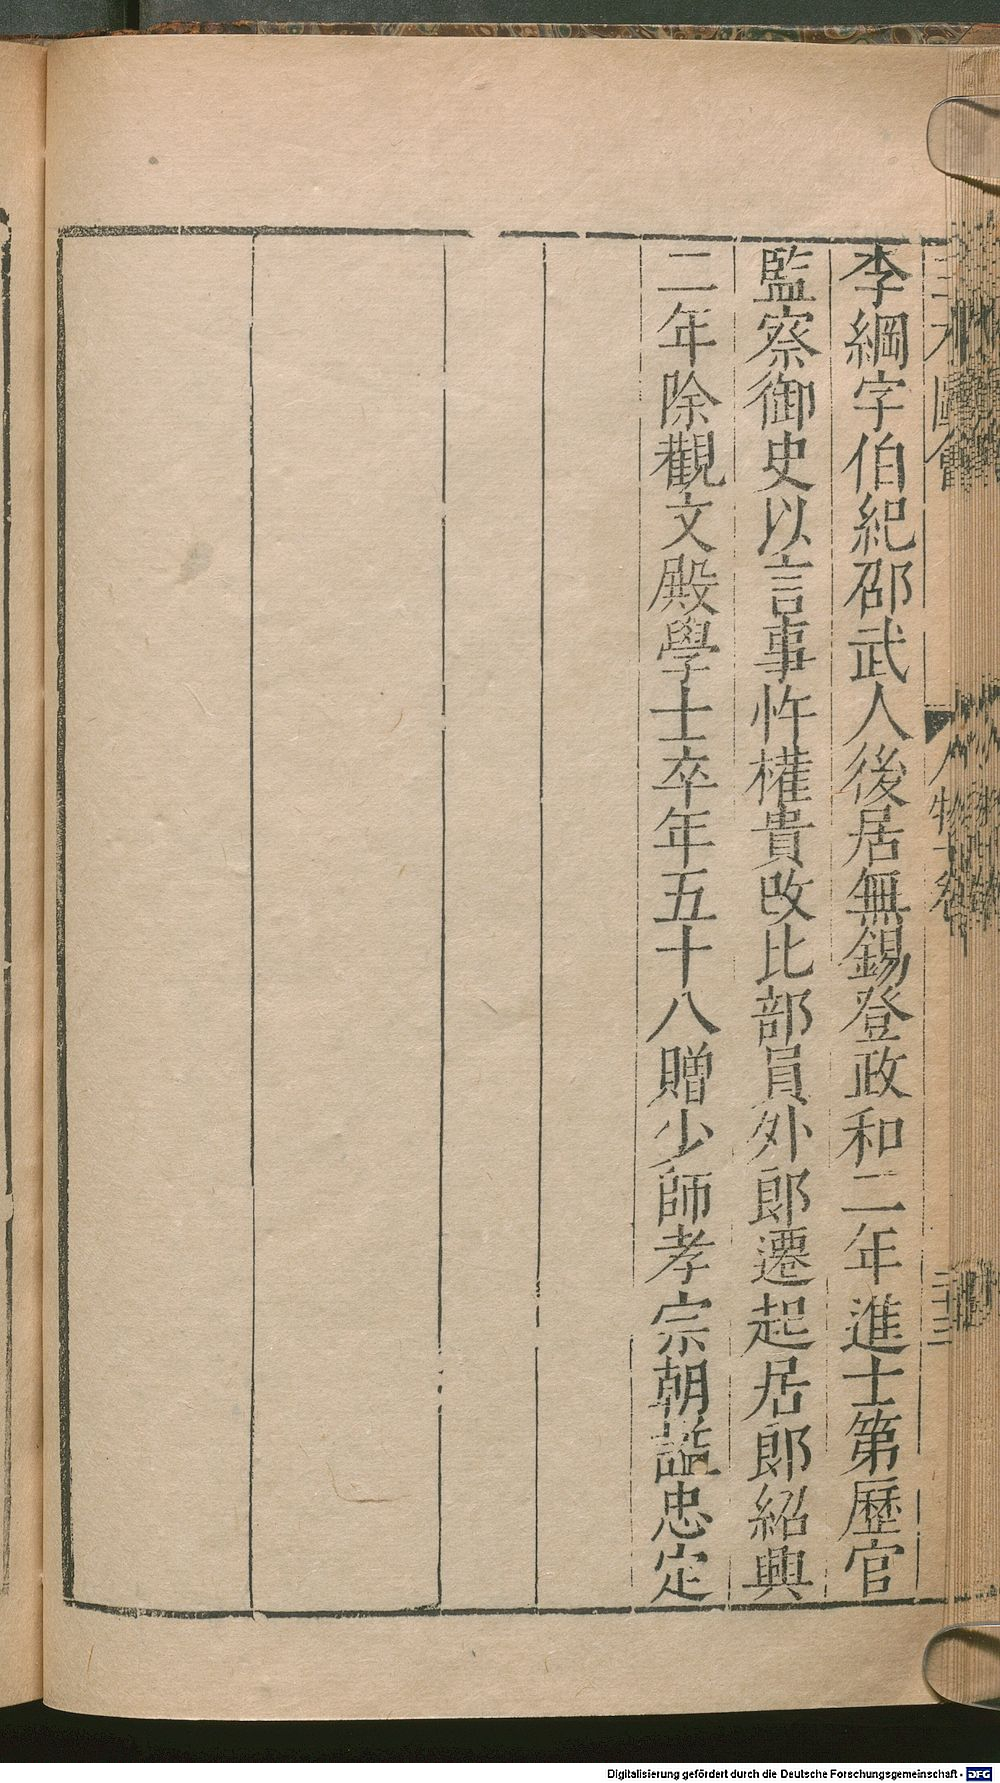 李綱字伯紀邵武人後居無錫登政和二年進士第歷官
監察御史以言事忤權貴改比部員外郎遷起居郎紹興
二年除觀文殿學士卒年五十八贈少師孝宗朝諡忠定
圖會
人物
Digitalisierung gefördert durch die Deutsche Forschungsgemeinschaft - DFG